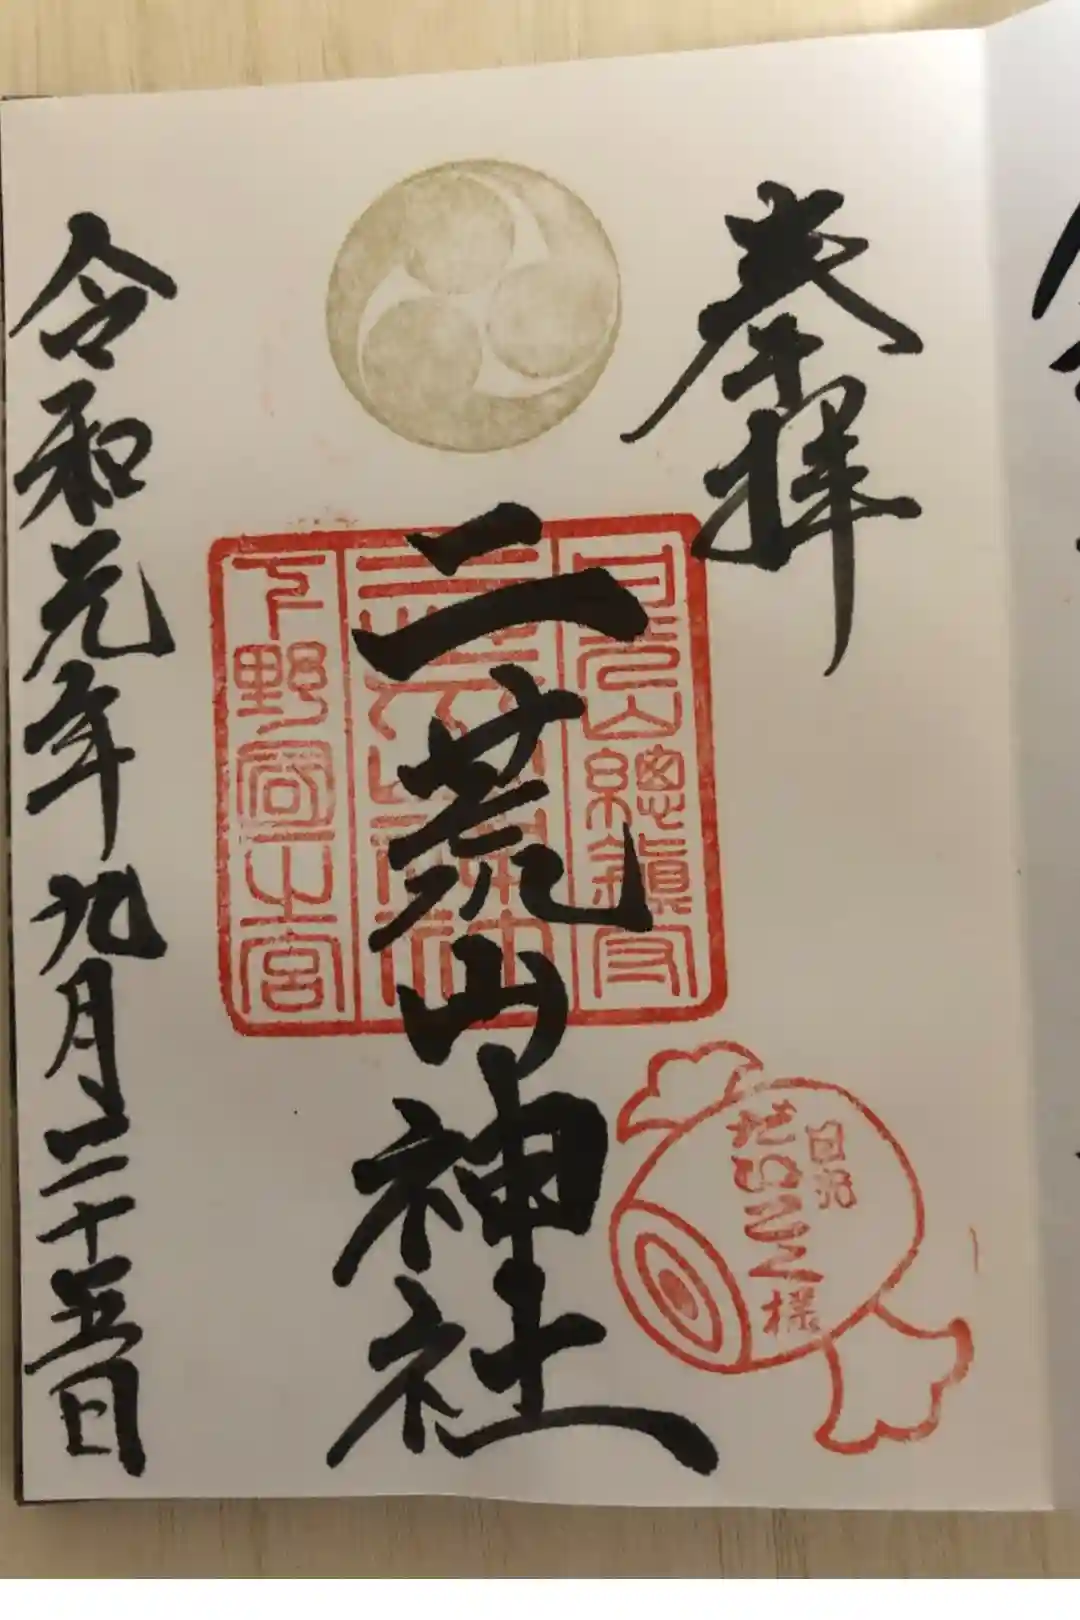 奉拝
日光山總鎮守
二荒山神社
下野國一宮
令和元年九月二十五日
日光
だいこく様